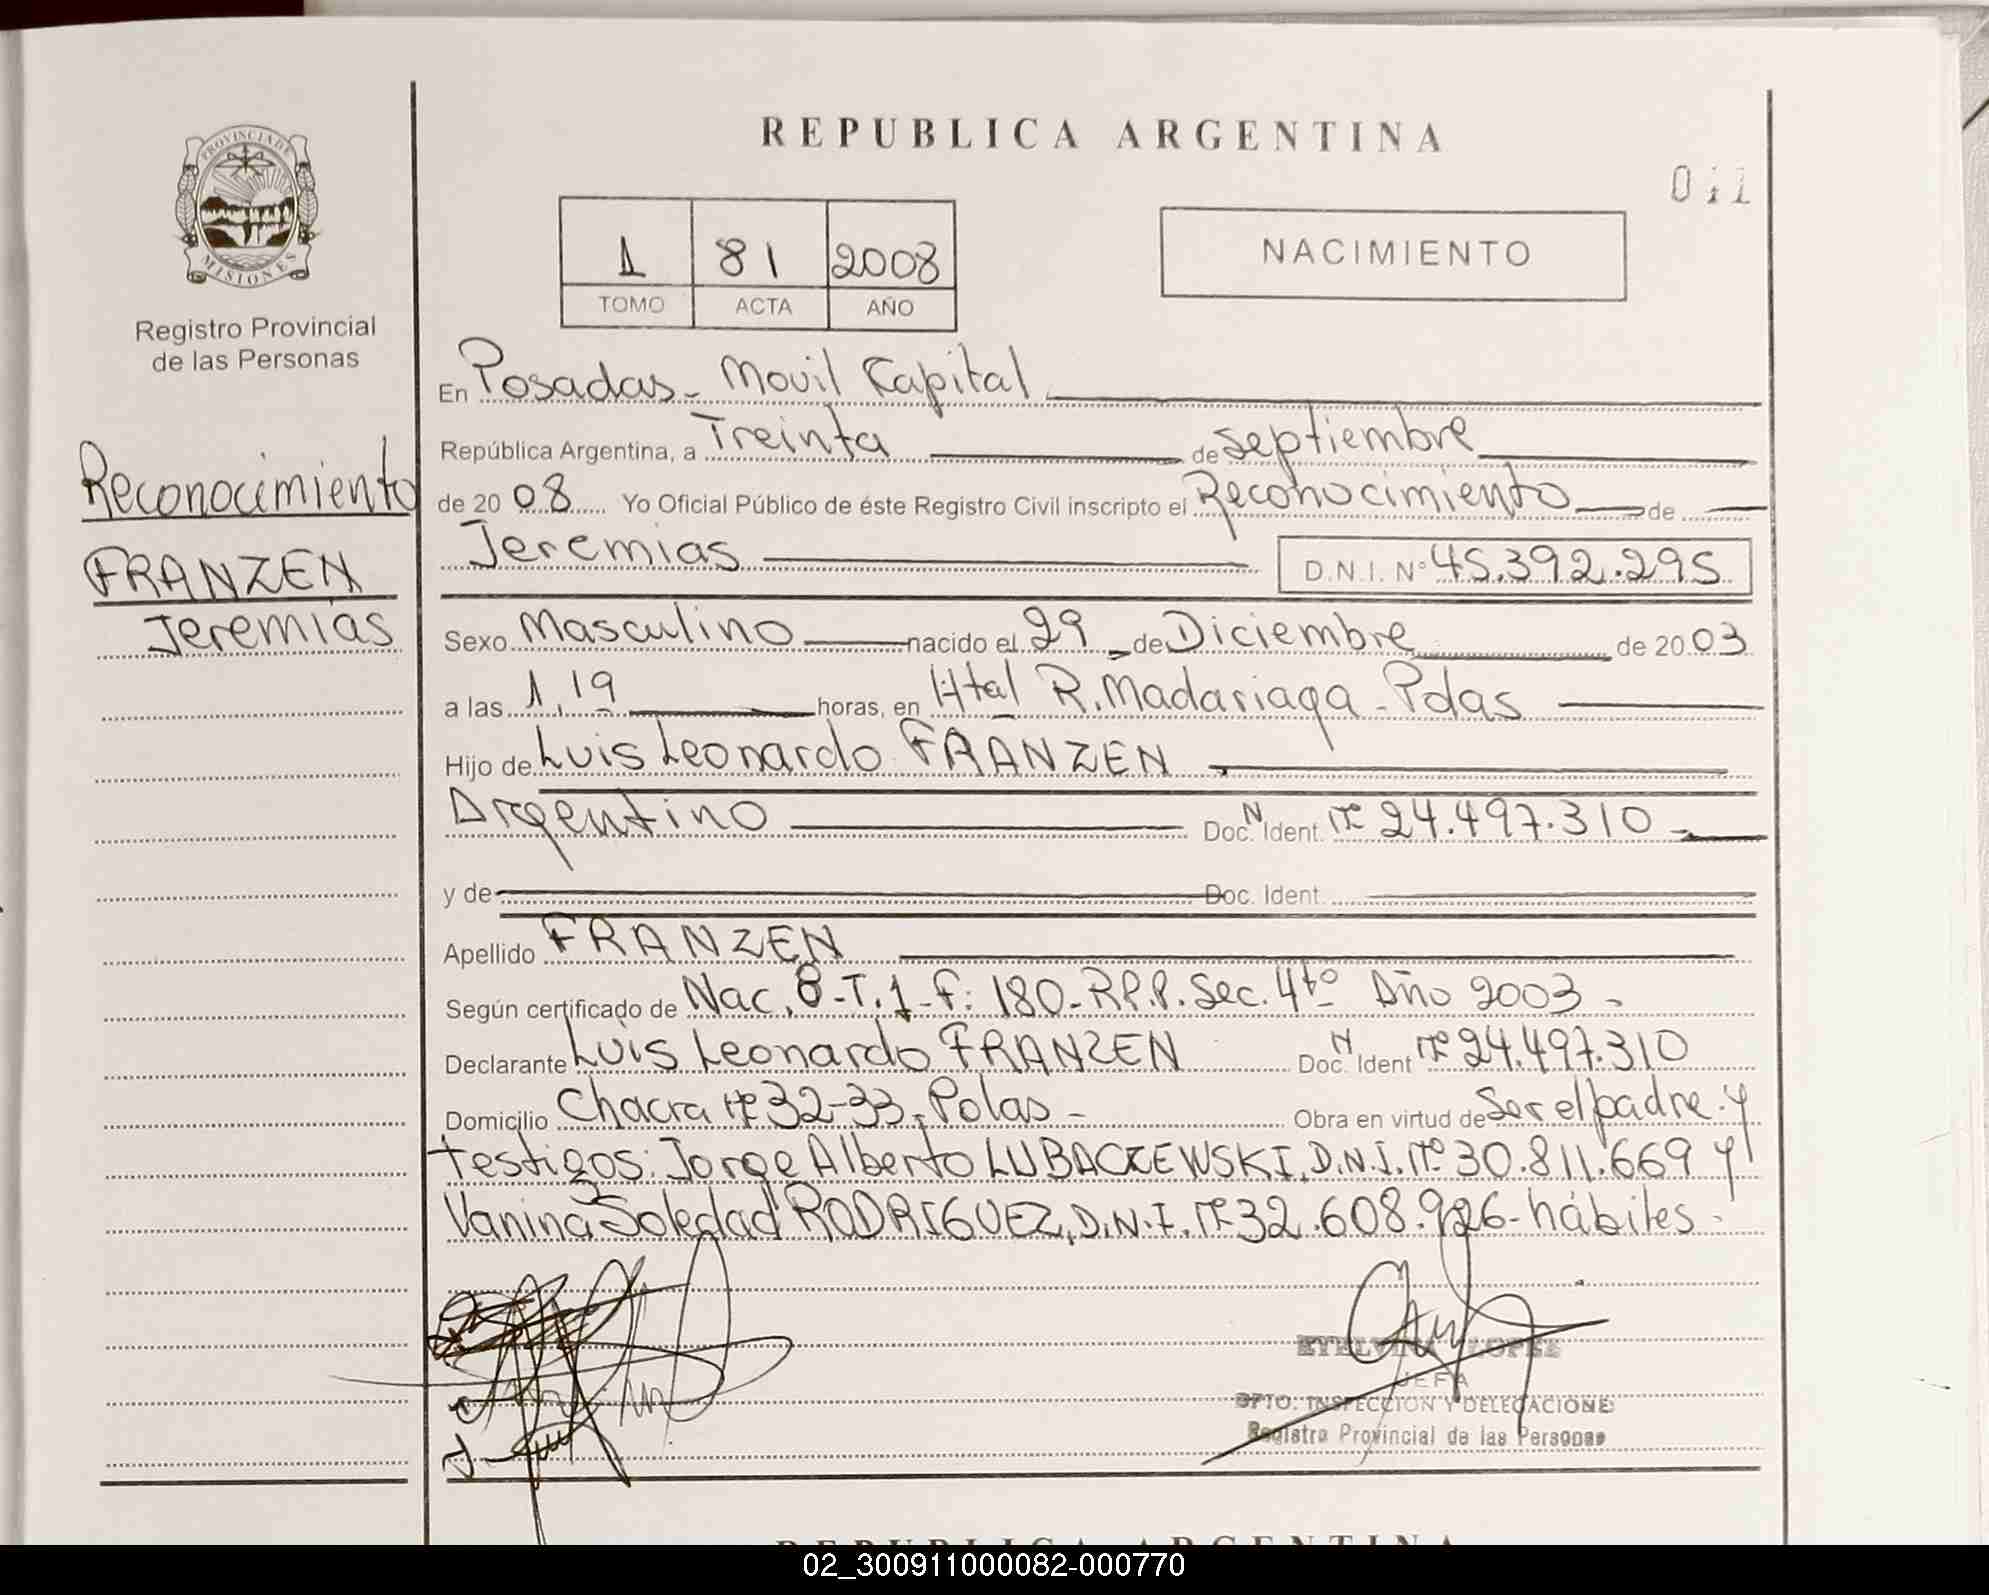 REPUBLICA ARGENTINA
011
PROVINCIA DE
MISIONES
Registro Provincial
de las Personas
1 81 2008
TOMO ACTA AÑO
NACIMIENTO
Reconocimiento
FRANZEN
Jeremias
En Posadas - Movil Capital
República Argentina, a Treinta de septiembre
de 20 08 Yo Oficial Público de éste Registro Civil inscripto el Reconocimiento de
Jeremias D.N.I. Nº 45.392.295
Sexo Masculino nacido el 29 de Diciembre de 20 03
a las 1,19 horas, en Htal R. Madariaga - Pdas
Hijo de Luis Leonardo FRANZEN
Argentino Doc. N Ident. Nº 24.497.310
y de Doc. Ident.
Apellido FRANZEN
Según certificado de Nac. 8 - T. 1 - F: 180 - R.P.P. Sec. 4to Año 2003 -
Declarante Luis Leonardo FRANZEN Doc. N Ident Nº 24.497.310
Domicilio Chacra Nº 32-33, Pdas - Obra en virtud de Ser el padre y
testigos: Jorge Alberto LUBACZEWSKI, D.N.I. Nº 30.811.669 y
Vanina Soledad RODRIGUEZ, D.N.I. Nº 32.608.926 - hábiles -
LOPEZ
JEFA
DPTO. INSPECCION Y DELEGACIONE
Registro Provincial de las Personas
REPUBLICA ARGENTINA
02_300911000082-000770